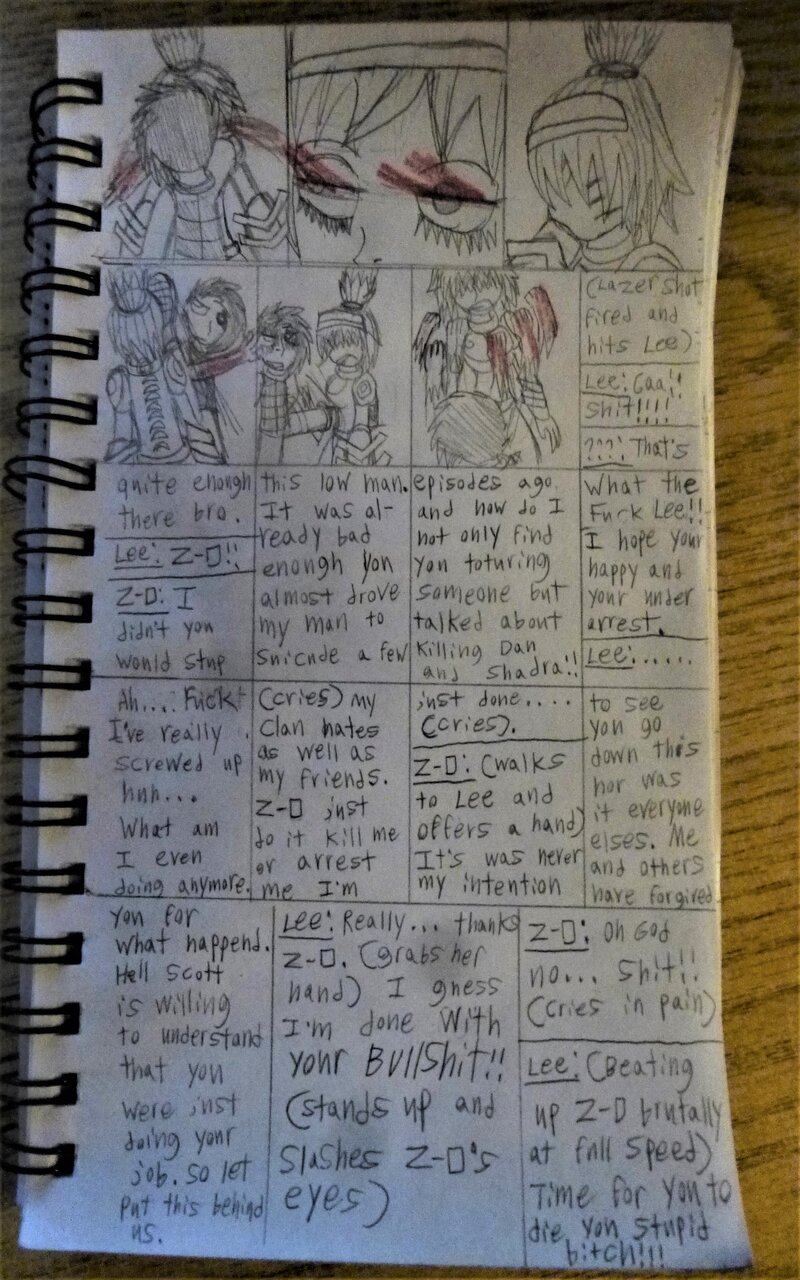 (Lazer shot
fired and
hits Lee)
Lee: Gaa!!
Shit!!!!
???: That's
quite enough
there bro.
Lee: Z-O!!
Z-O: I
didn't you
would stup
this low man.
It was al-
ready bad
enough you
almost drove
my man to
suicude a few
episodes ago,
and how do I
not only find
you toturing
someone but
talked about
Killing Dan
and Shadra!!
What the
Fuck Lee!!
I hope your
happy and
your under
arrest.
Lee:......
Ah.... Fuck!
I've really
screwed up
huh...
What am
I even
doing anymore.
(cries) my
Clan hates
as well as
my friends.
Z-O just
do it kill me
or arrest
me I'm
just done....
(cries).
Z-O: (walks
to Lee and
offers a hand)
It's was never
my intention
to see
you go
down this
nor was
it everyone
elses. Me
and others
have forgived
you for
what happend.
Hell Scott
is willing
to understand
that you
were just
doing your
job. So let
put this behind
us.
Lee: Really... thanks
Z-O. (grabs her
hand) I guess
I'm done with
your Bullshit!!
(stands up and
slashes Z-O's
eyes)
Z-O: Oh God
no... Shit!!
(cries in pain)
Lee: (Beating
up Z-O brutally
at full speed)
Time for you to
die you stupid
bitch!!!